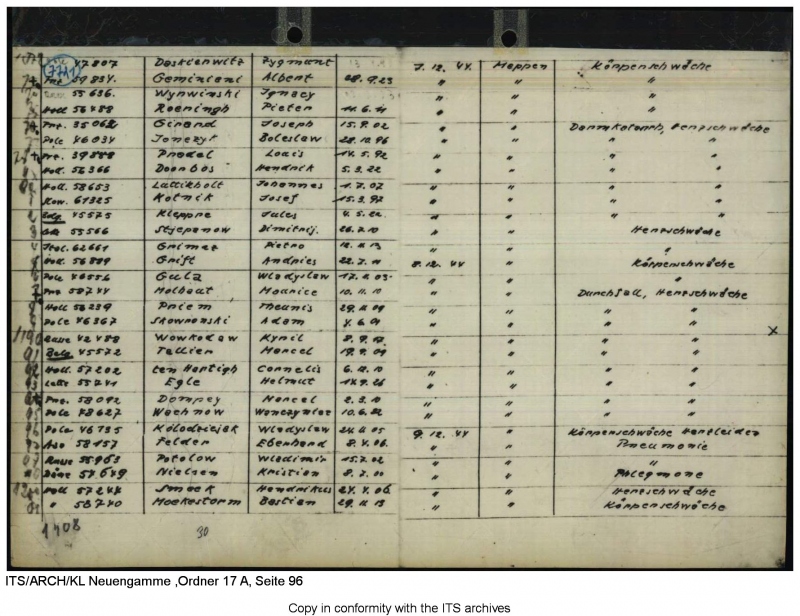 47807 Daskiewitz Zygmunt 7.12.44 Meppen Körpenschwäche
7711 59834. Geminiani Albert 28.9.23 " " "
55636. Wynwinski Ignacy " " "
Holl 56488 Roeningh Pieter " " "
Frz. 35062 Girand Joseph 15.9.02 " " Darmkatarrh, Herzschwäche
Pole 46034 Jenczyt Boleslaw 28.10.96 " " " "
Frz. 39848 Pradel Louis 14.5.92 " " " "
Holl. 56366 Doonbos Hendrik 5.3.22 " " " "
Holl. 58653 Lattikholt Johannes 1.7.07 " " " "
61325 Kotnik Josef 15.3.97 " " " "
Belg. 45575 Kleppre Jules 4.5.22 " " " "
3 55566 Stjepanow Dimitrij. 26.7.10 " " Herzschwäche
4 Ital. 62661 Grimaz Pietro " " "
Holl. 56889 Grift Andries 22.7.11 8.12.44 " Körpenschwäche
Pole 46556 Gula Wladyslaw " " "
Frz 58744 Molbaut Maurice 10.11.10 " " Durchfall, Herzschwäche
Holl 56239 Priem Theunis 29.11.09 " " " "
Pole 46367 Skowronski Adam 4.6.01 " " " "
1190 Russe 42488 Wowkodaw Kyril 8.9.12 " " " " x
91 Belg. 45572 Tallier Marcel 19.9.01 " " " "
92 Holl. 57202 ten Hartigh Cornelis 6.12.10 " " " "
93 Lette 55741 Egle Helmut 14.9.26 " " " "
Frz. 58092 Dompey Marcel 2.3.10 " " " "
95 Pole 78627 Wachnow Wanczyniec 10.6.22 " " " "
96 Pole 46735 Kolodziejak Wladyslaw 24.11.05 9.12.44 " Körpenschwäche Herzleiden
97 Aso 58157 Felder Eberhard 8.4.06. " " Pneumonie
Russe 55963 Potolow Wladimir 15.7.02 " " "
Däne 57649 Nielsen Kristian 8.7.00 " " Phlegmone
Holl 57244 Smeek Hendrikus 24.4.06. " " Herzschwäche
" 58740 Hoekstorm Bastian 29.11.13 " " Körpenschwäche
1408 30
ITS/ARCH/KL Neuengamme ,Ordner 17 A, Seite 96
Copy in conformity with the ITS archives